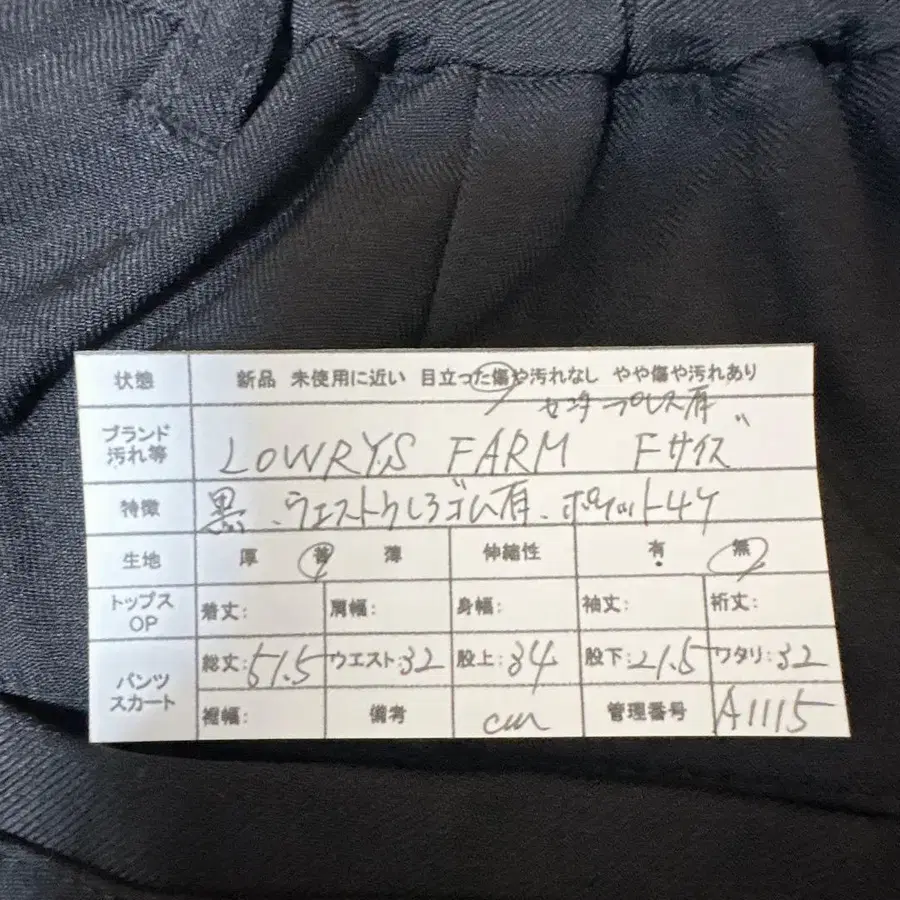 状態 新品 未使用に近い 目立った傷や汚れなし やや傷や汚れあり
センタープレス有
ブランド 汚れ等 LOWRYS FARM Fサイズ
特徴 黒、ウエストうしろゴム有、ポケット4ケ
生地 厚 普 薄 伸縮性 有 無
トップス OP 着丈: 肩幅: 身幅: 袖丈: 裄丈:
パンツ スカート 総丈:51.5 ウエスト:32 股上:34 股下:21.5 ワタリ:32
裾幅: 備考 cm 管理番号 A1115